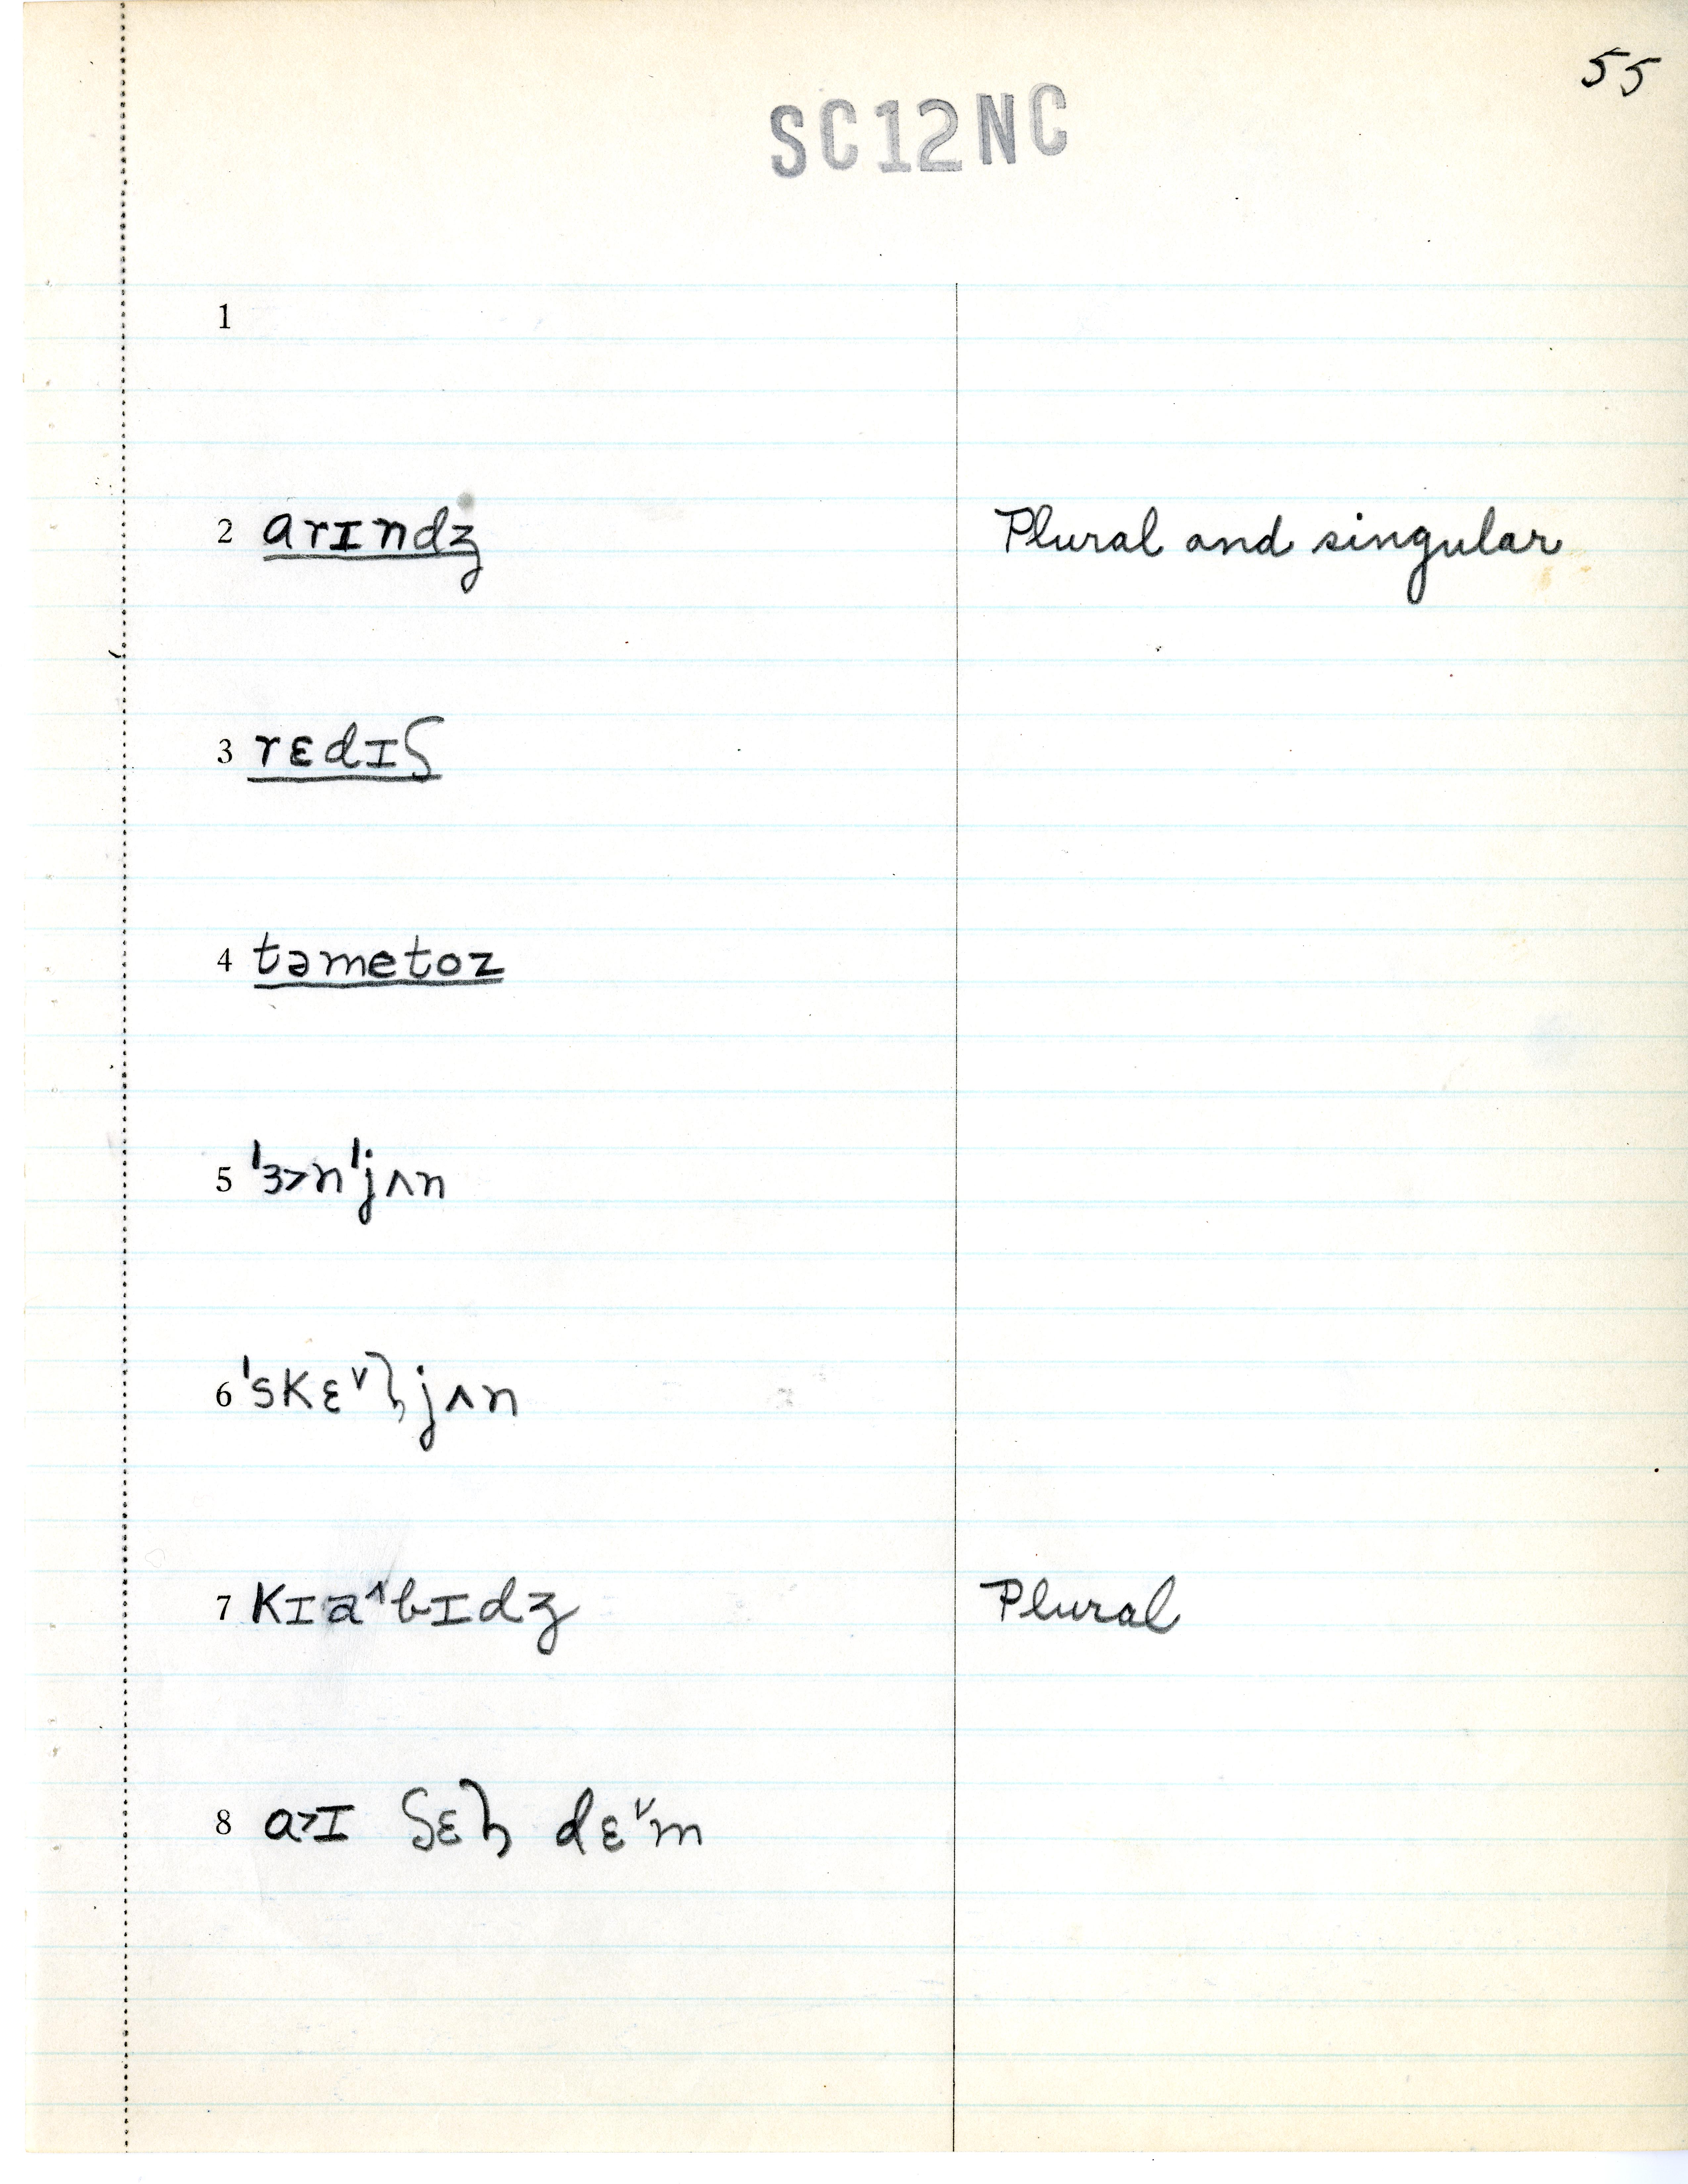 55
SC12NC
1
2 arɪndʒ Plural and singular
3 rɛdɪʃ
4 təmetoz
5 ˈɜ˃nˈjʌn
6 ˈskɛ˅ɫjʌn
7 kɪa˄bɪdʒ Plural
8 a˃ɪ ʃɛɫ dɛ˅m